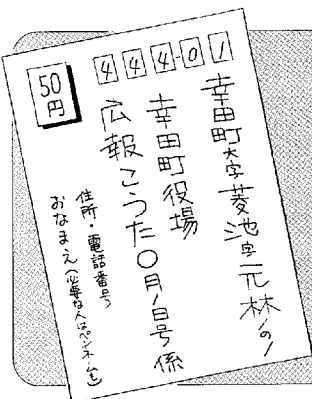 50円
444-01
幸田町大字菱池字元林1の1
幸田町役場
広報こうた〇月1日号係
住所・電話番号
おなまえ(必要な人はペンネームも)